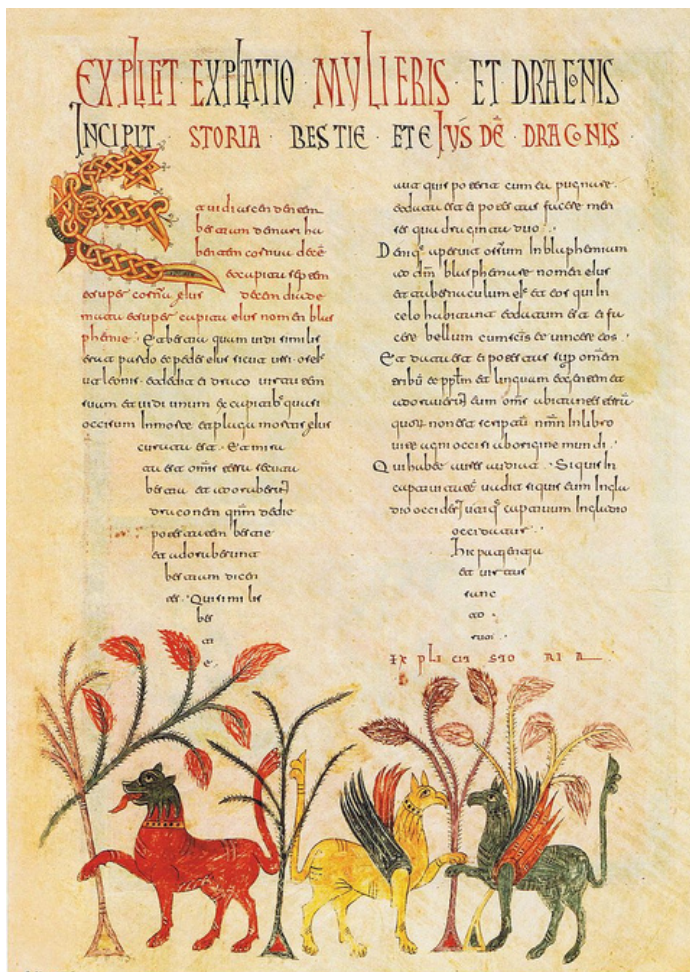 EXPLICIT EXPLATIO MULIERIS ET DRACONIS
INCIPIT STORIA BESTIE ET EIUS DE DRACONIS
Et uidi ascendentem
bestiam de mari ha
bentem cornua decē
et capita septem
et super cornua eius decem diade
mata et super capita eius nomen blas
phemie. Et bestiam quam uidi similis
erat pardo et pedes eius sicut ursi. os eius
ut leonis. et dedit ei draco uirtutem
suam et uidi unum ex capitib; quasi
occisum In morte et plaga mortis eius
curata est. Et mira
ta est omis terra secuta
bestia et adoraberūt
draconem qnm dedit
potestatem bestie
et adoraberunt
bestiam dicen
tes. Quis similis
bes
ti
e.
aut quis poterit cum ea pugnare.
et data est ei potestas facere men
ses quadraginta duo.
Denq; aperuit os suum In blasphemium
ad dm̄ blasphemare nomen eius
et tabernaculum ei; et eos qui In
celo habitant et datum est ei fa
cere bellum cum scis et uincere eos.
Et data est ei potestas sup omem
tribū et pptm et linguam et gentem et
adorauerūt eum oms abitantes terrā
quor non est scriptū nmn In libro
uite agni occisi ab origine mundi.
Qui habet aures audiat. Si quis In
captiuitatē uadit si quis eum In gla
dio occiderit uti q; captiuum In gladio
occidatur.
hic patientia
et uirtus
sanc
to
rum.
EXPLICIT STORIA